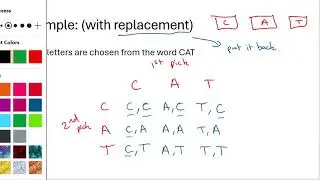 ness
mple: (with replacement)
C A T
put it back.
nt Colors
letters are chosen from the word CAT
1st pick
C A T
C C,C C,A,A T,C
2nd pick
A C,A A,A T,A
T C,T A,T T,T